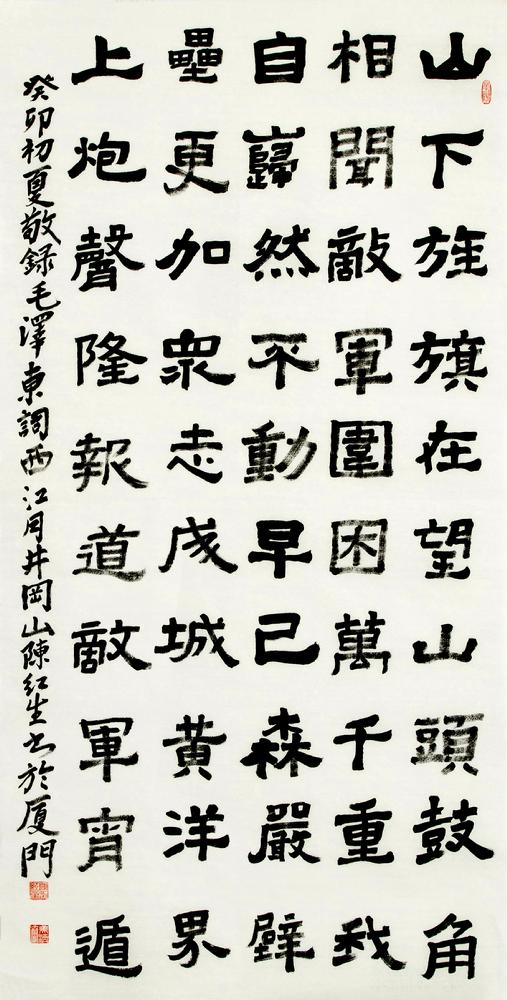 山下旌旗在望山頭鼓角
相聞敵軍圍困萬千重我
自巋然不動早已森嚴壁
壘更加衆志成城黄洋界
上炮聲隆報道敵軍宵遁
癸卯初夏敬録毛澤東詞西江月井岡山陳红生书於厦門